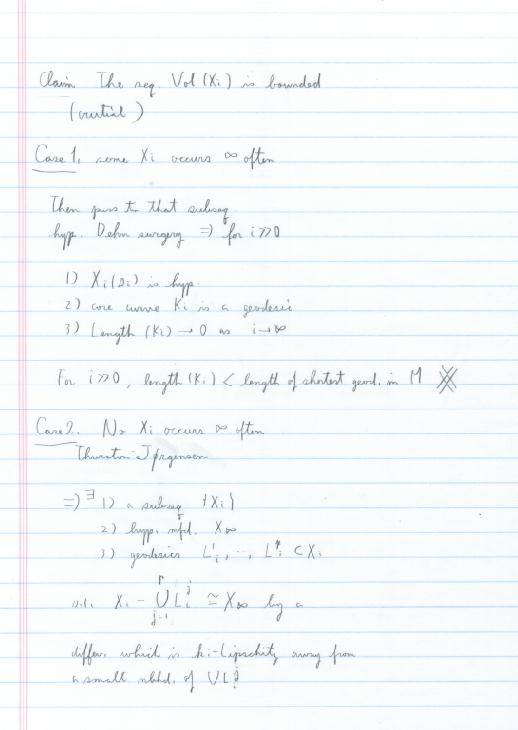 Claim The seq. Vol (Xi) is bounded
(crucial)
Case 1. some Xi occurs ∞ often
Then pass to that subseq
hyp. Dehn surgery ⇒ for i>>0
1) Xi(si) is hyp.
2) core curve Ki is a geodesic
3) Length (Ki) → 0 as i→∞
For i>>0, length (Ki) < length of shortest geod. in M
Case 2. No Xi occurs ∞ often
Thurston-Jørgensen
⇒ ∃ 1) a subseq {Xi}
2) hyp. mfd. X∞
3) geodesics L¹i, ..., Lⁿi ⊂ Xi
s.t. Xi - ⋃ʳj=1 Lʲi ≅ X∞ by a
diffeo. which is ki-Lipschitz away from
a small nbhd. of ∪Lʲi